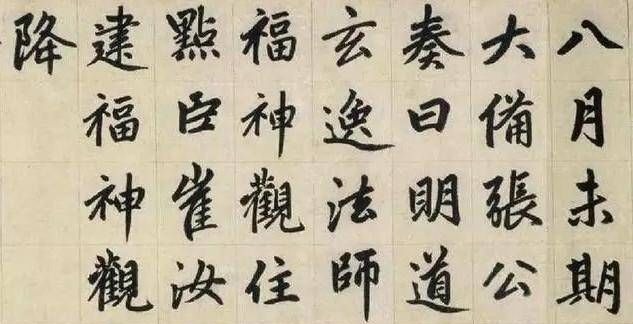 八月未期
大備張公
奏曰明道
玄逸法師
福神觀住
點臣崔汝
建福神觀
降